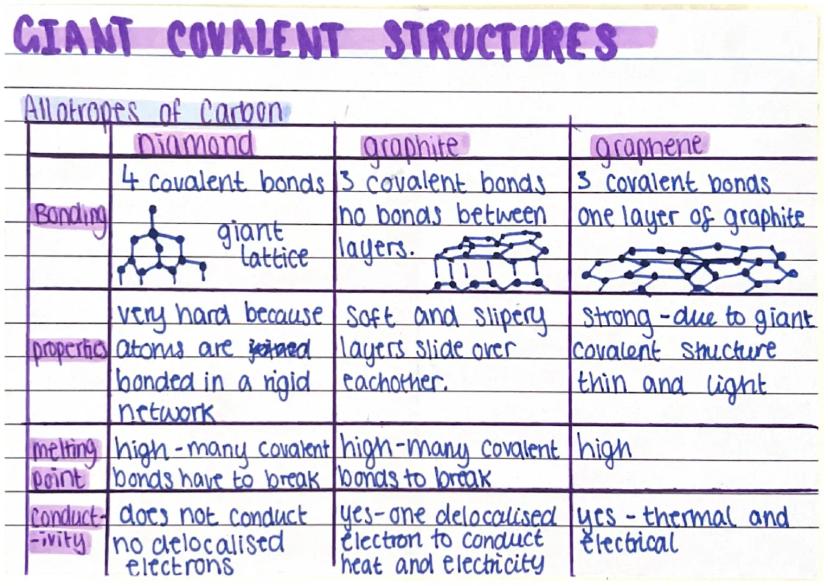 GIANT COVALENT STRUCTURES
Allotropes of Carbon
Diamond
graphite
graphene
Bonding
4 covalent bonds
giant
lattice
3 covalent bonds
no bonds between
layers.
3 covalent bonds
one layer of graphite
properties
very hard because
atoms are joined
bonded in a rigid
network
soft and slipery
layers slide over
eachother.
strong - due to giant
covalent structure
thin and light
melting
point
high - many covalent
bonds have to break
high - many covalent
bonds to break
high
conduct-
-ivity
does not conduct
no delocalised
electrons
yes - one delocalised
electron to conduct
heat and electricity
yes - thermal and
electrical